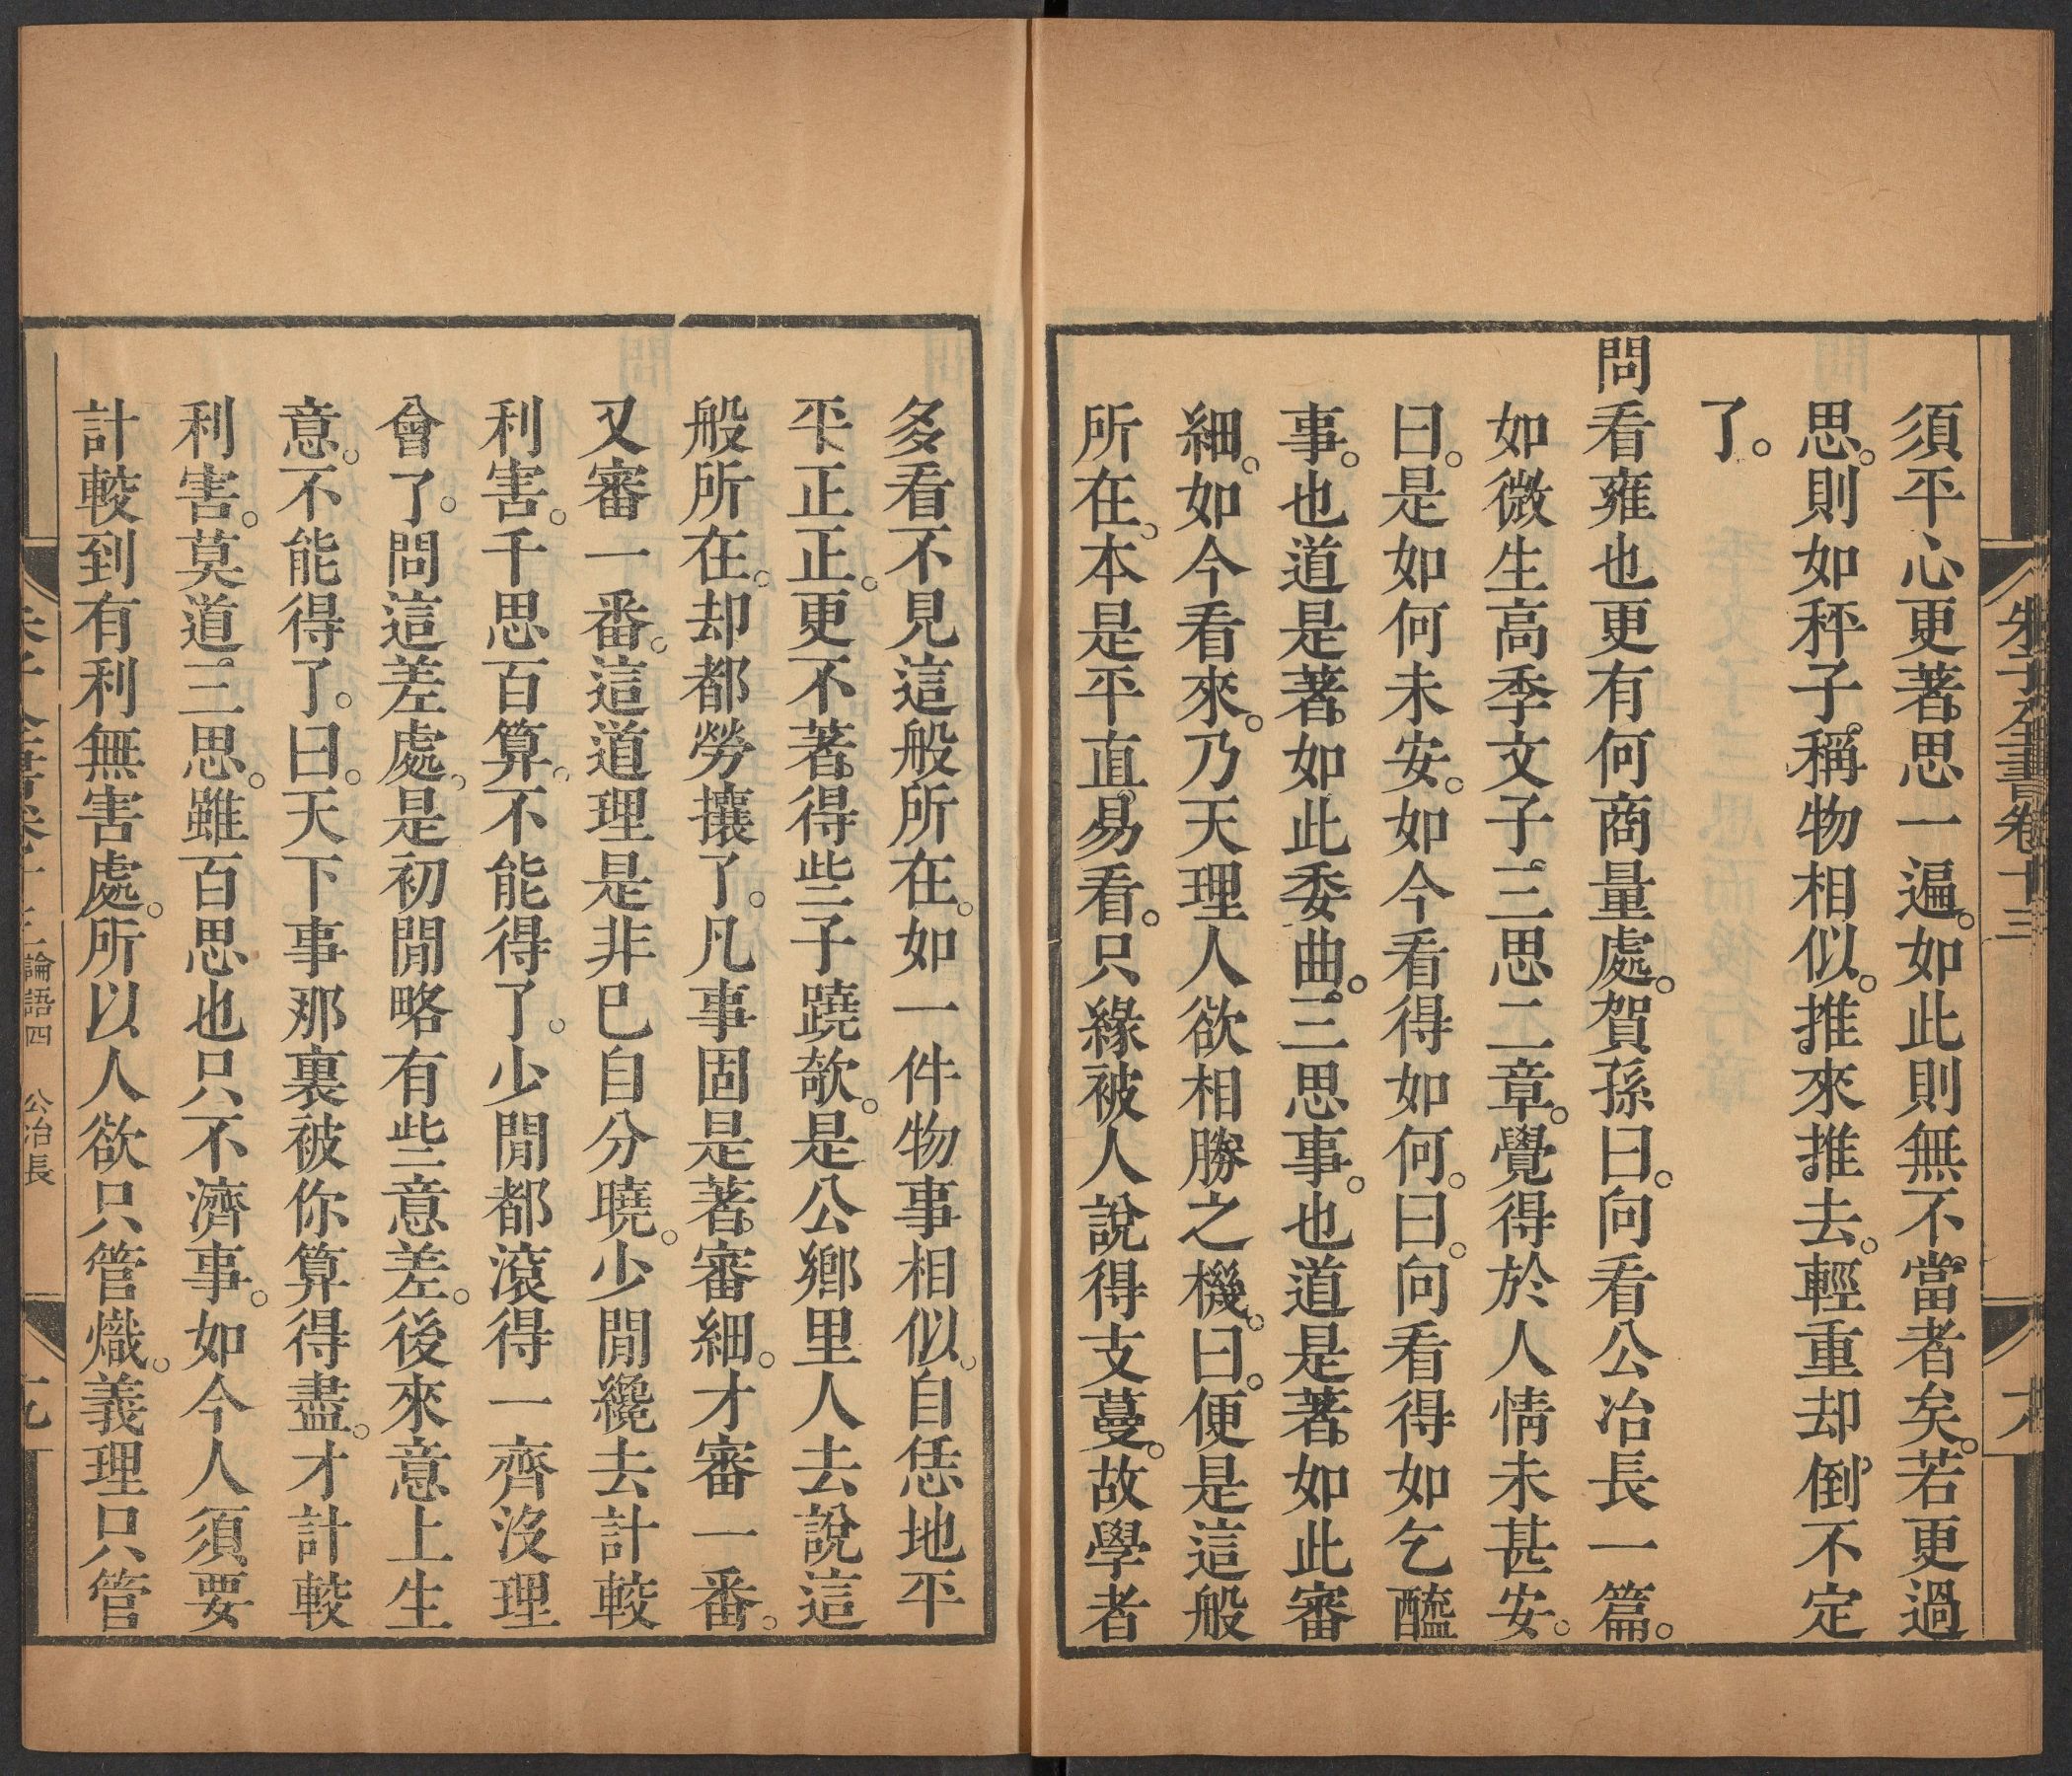 朱子全書卷十三
須平心更著思一遍。如此則無不當者矣。若更過
思。則如秤子。稱物相似。推來推去。輕重却倒不定
了。
問看雍也更有何商量處。賀孫曰。向看公冶長一篇。
如微生高季文子三思二章。覺得於人情未甚安。
曰。是如何未安。如今看得如何。曰。向看得如乞醯
事。也道是著如此委曲。三思事。也道是著如此審
細。如今看來。乃天理人欲相勝之機。曰。便是這般
所在。本是平直易看。只緣被人說得支蔓。故學者
多看不見這般所在。如一件物事相似。自恁地平
平正正。更不著得些子蹺欹。是公鄉里人去說這
般所在。却都勞攘了。凡事固是著審細。才審一番。
又審一番。這道理是非已自分曉。少閒纔去計較
利害。千思百算。不能得了。少閒都滾得一齊沒理
會了。問這差處。是初閒略有些意差。後來意上生
意。不能得了。曰。天下事那裏被你算得盡。才計較
利害。莫道三思。雖百思也只不濟事。如今人須要
計較到有利無害處。所以人欲只管熾。義理只管
論語四 公冶長